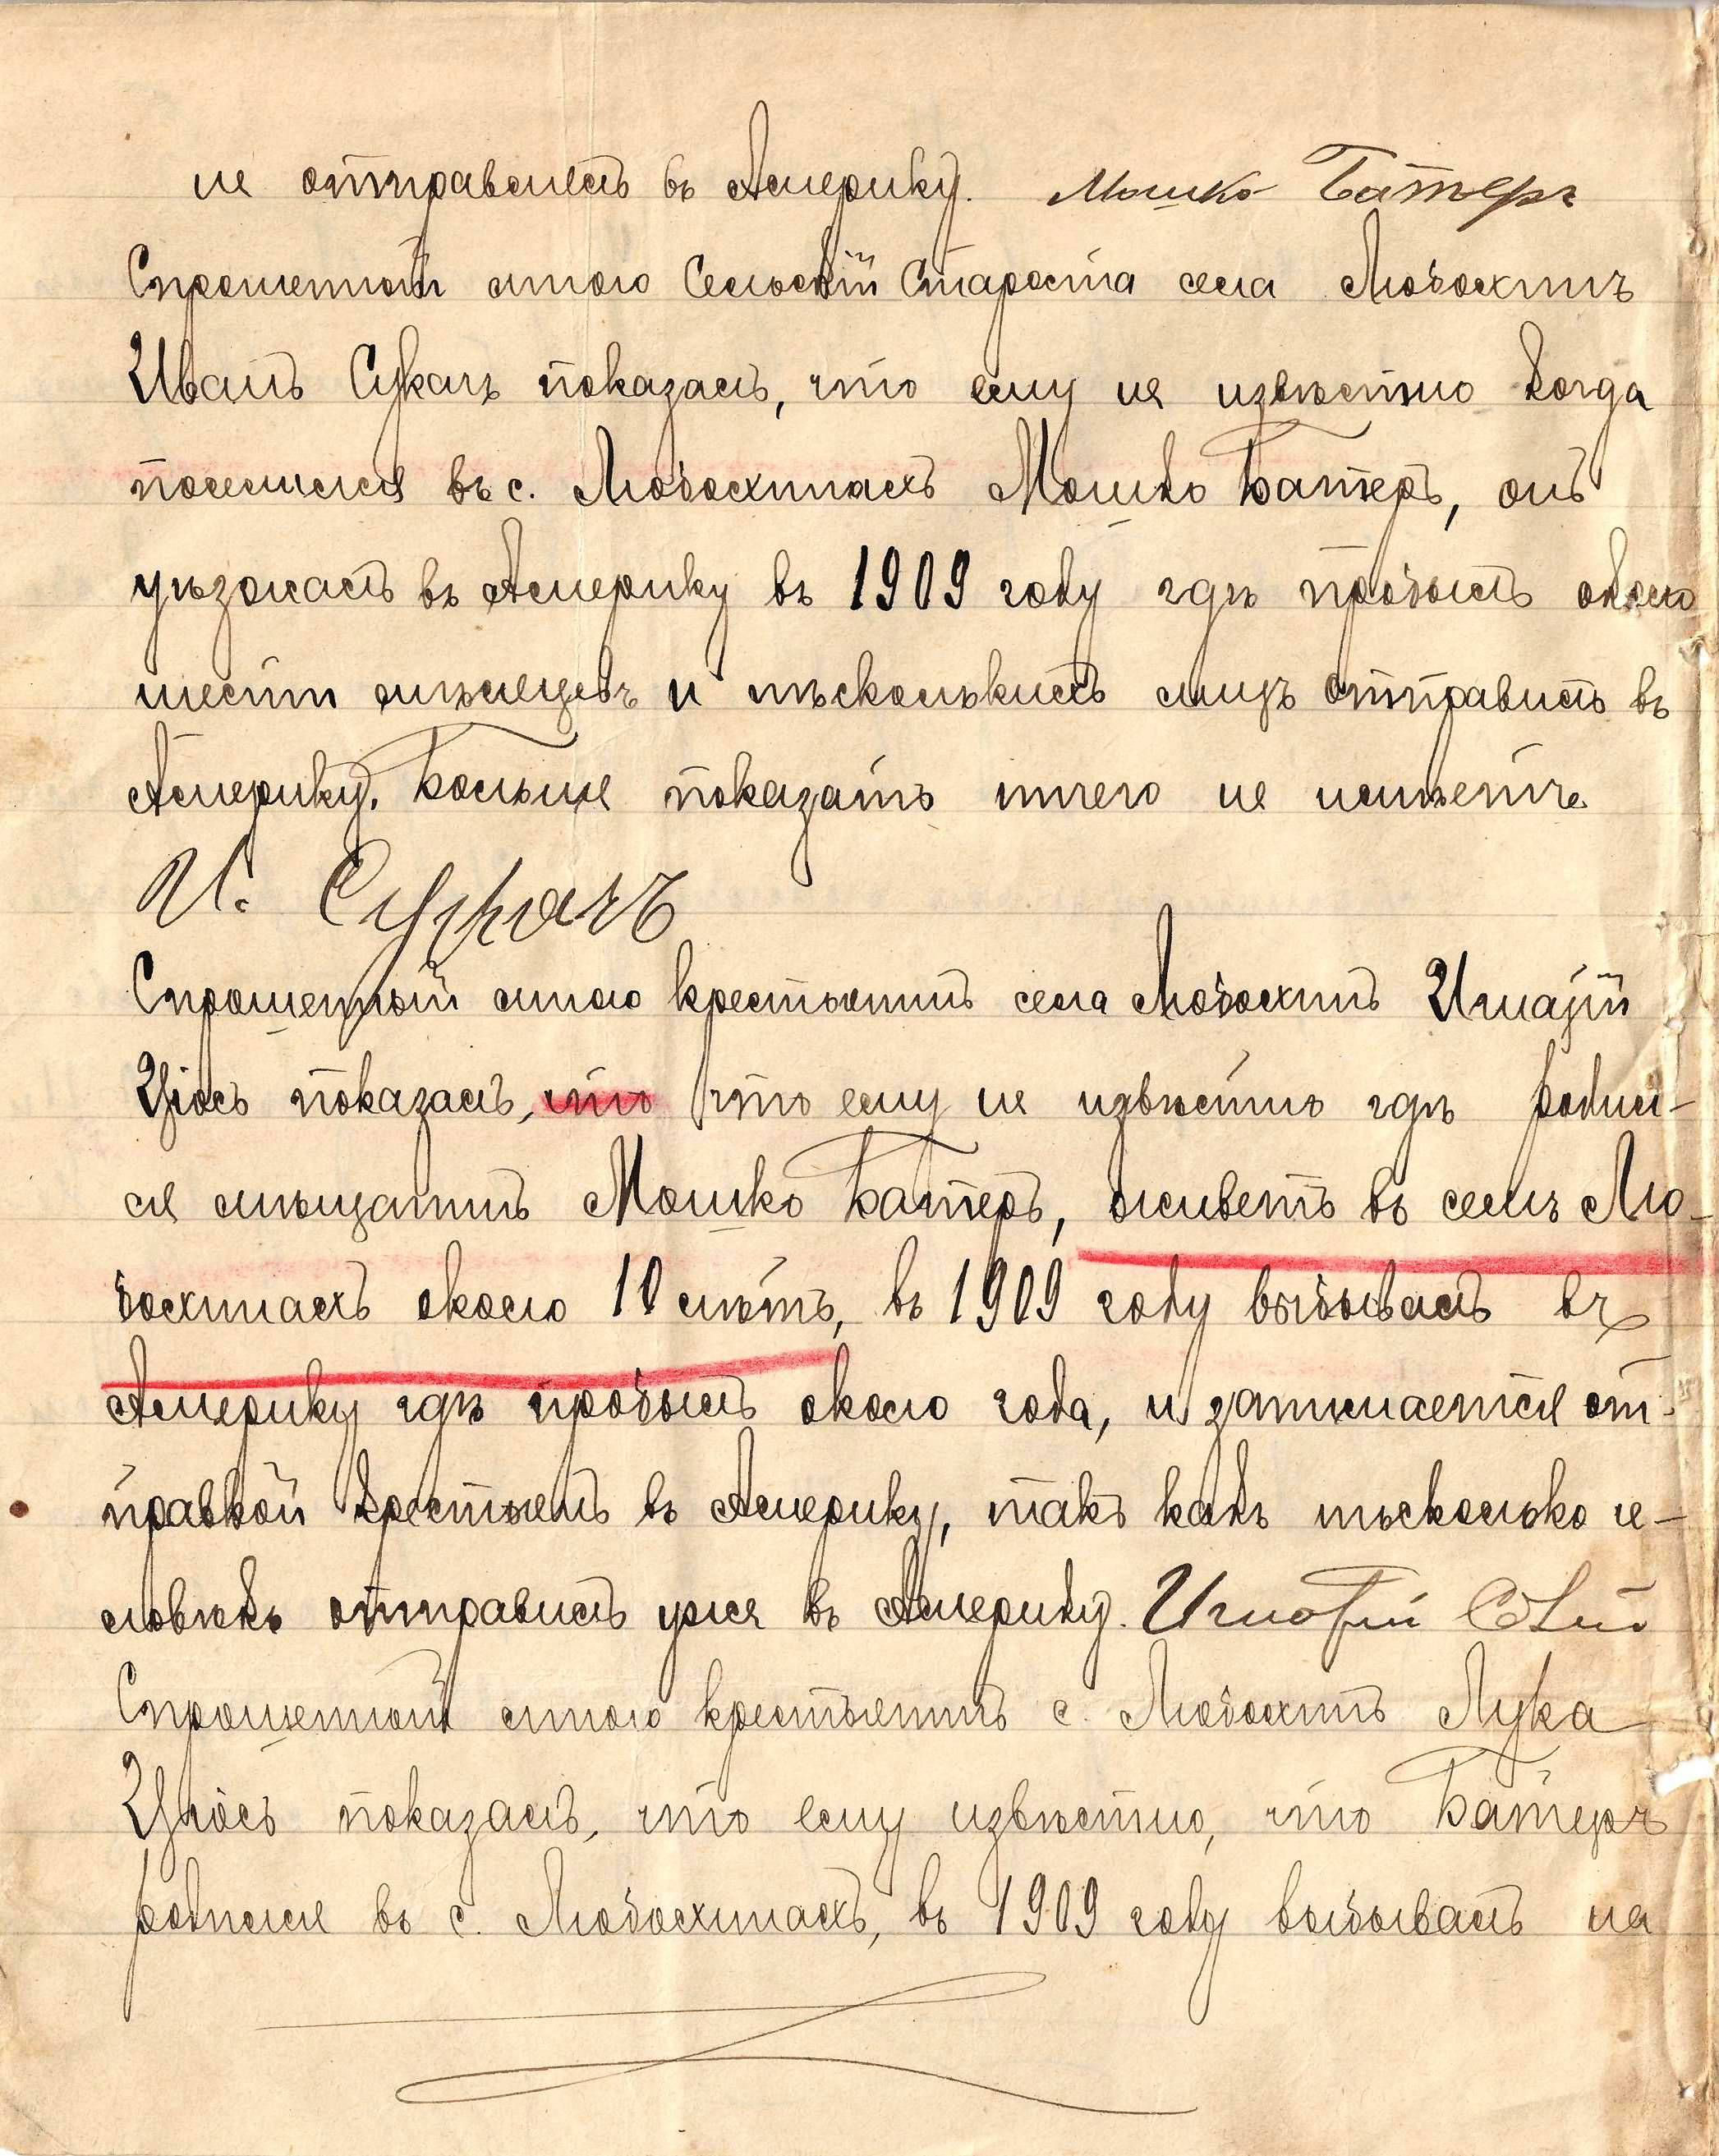 не отправлялъ въ Америку. Мошко Батеръ
Спрошенный мною Сельскій Староста села Любохинъ
Иванъ Сукачъ показалъ, что ему не извѣстно когда
поселился въ с. Любохинахъ Мошко Батеръ, онъ
уѣзжалъ въ Америку въ 1909 году гдѣ пробылъ около
шести мѣсяцевъ и нѣсколькихъ лицъ отправилъ въ
Америку. Больше показать ничего не имѣетъ.
И. Сукачъ
Спрошенный мною крестьянинъ села Любохинъ Игнатій
показалъ, что что ему не извѣстно гдѣ родил-
ся мѣщанинъ Мошко Батеръ, живетъ въ селѣ Лю-
бохинахъ около 10 лѣтъ, въ 1909 году выбывалъ въ
Америку гдѣ пробылъ около года, и занимается от-
правкой крестьянъ въ Америку, такъ какъ нѣсколько че-
ловѣкъ отправилъ уже въ Америку. Игнатій
Спрошенный мною крестьянинъ с. Любохинъ Лука
показалъ, что ему извѣстно, что Батеръ
родился въ с. Любохинахъ, въ 1909 году выбывалъ на